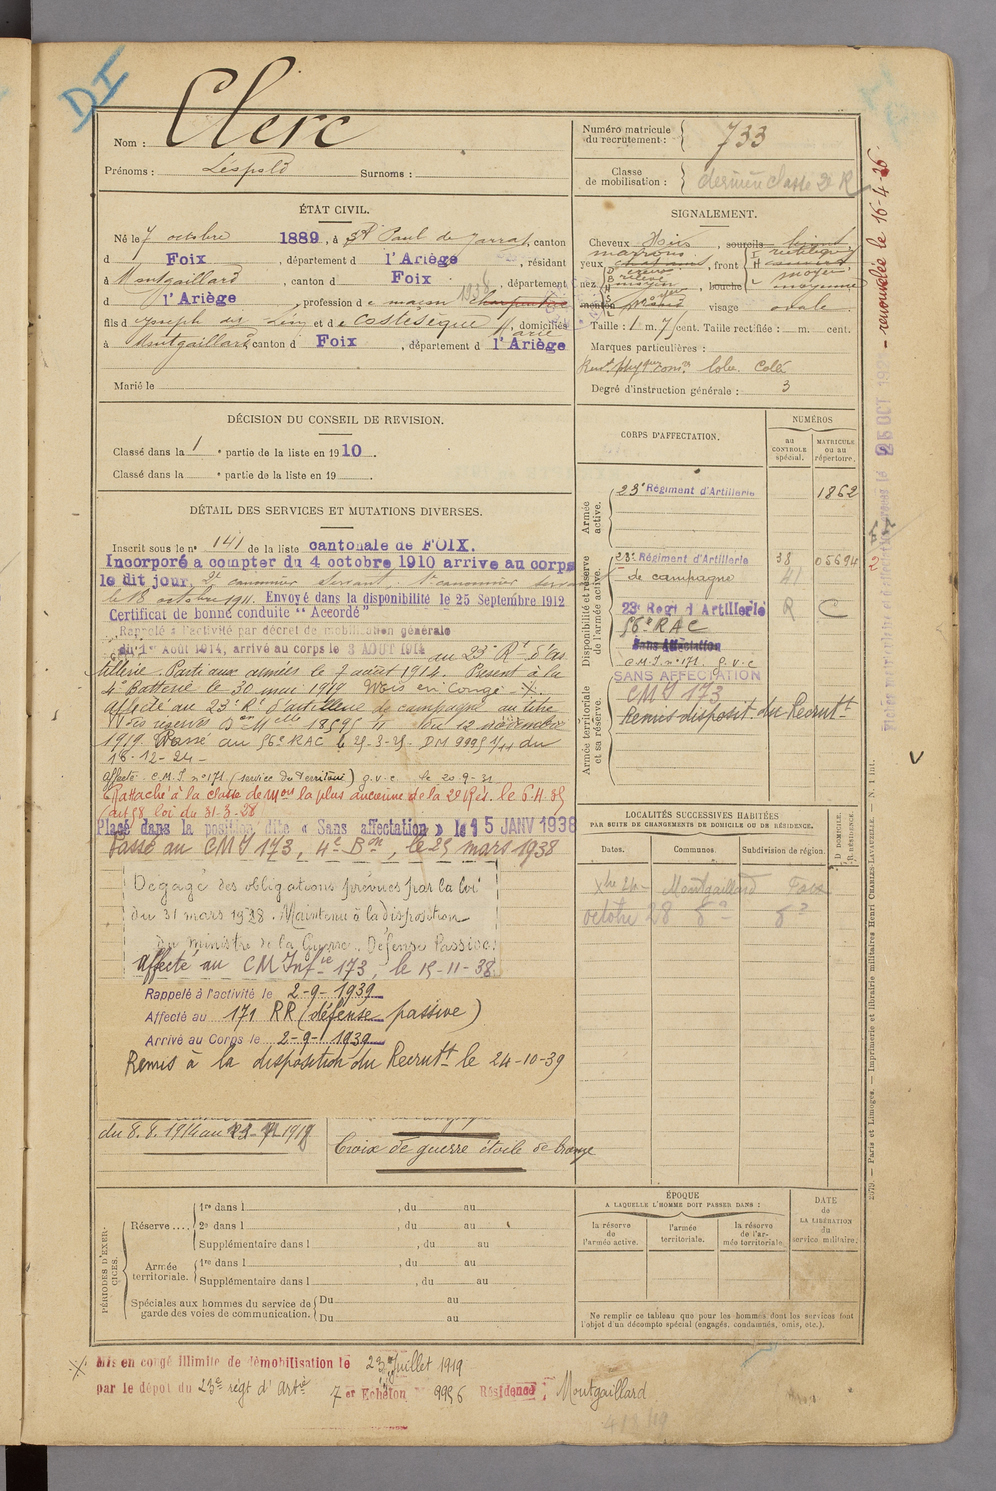 DI
Nom : Clerc
Prénoms : Léopold Surnoms :
Numéro matricule du recrutement : 733
Classe de mobilisation : dernière classe 2e R
renouvelée le 16-4-26
ÉTAT CIVIL.
Né le 7 octobre 1889, à St Paul de Jarrat, canton
d Foix, département d l'Ariège, résidant
à Montgaillard, canton d Foix, département
d l'Ariège, profession de maçon
fils d Joseph et de Costeseque Marie, domiciliés
à Montgaillard canton d Foix, département d l'Ariège
Marié le
SIGNALEMENT.
Cheveux Noirs, sourcils
yeux marrons, front
nez, bouche
menton visage ovale
Taille : 1 m. 71 cent. Taille rectifiée : m. cent.
Marques particulières :
Degré d'instruction générale : 3
DÉCISION DU CONSEIL DE REVISION.
Classé dans la 1e partie de la liste en 1910.
Classé dans la e partie de la liste en 19
DÉTAIL DES SERVICES ET MUTATIONS DIVERSES.
Inscrit sous le no 141 de la liste cantonale de FOIX.
Incorporé a compter du 4 octobre 1910 arrive au corps
le dit jour, 2e canonnier servant. 1er canonnier servant
le 18 octobre 1911. Envoyé dans la disponibilité le 25 Septembre 1912
Certificat de bonne conduite "Accordé"
Rappelé à l'activité par décret de mobilisation générale
du 1er Août 1914, arrivé au corps le 3 AOUT 1914 au 23e Rt d'ar
tillerie. Parti aux armées le 7 août 1914. Présent à la
4e Batterie le 30 mai 1919 Mis en congé
affecté au 23e Rt d'artillerie de campagne au titre
du 12 novembre
1919. Passé au 56e RAC le 25-3-25. DM 9995 1/11 du
16-12-24-
affecté C.M.I. no 171 (service du Territoire) g.v.c. le 20-9-31
Rattaché à la classe de mon la plus ancienne de la 2e Rés. le 6.4.35
(art 58 loi du 31-3-28
Placé dans la position dite « Sans affectation » le 15 JANV 1938
Passé au CMI 173, 4e Bon, le 25 mars 1938
Dégagé des obligations prévues par la loi
du 31 mars 1928. Maintenu à la disposition
du ministre de la Guerre. Défense Passive.
Affecté au CM Infie 173, le 15-11-38
Rappelé à l'activité le 2-9-1939
Affecté au 171 RR (défense passive)
Arrivé au Corps le 2-9-1939
Remis à la disposition du Recrutt le 24-10-39
du 8.8.1914 au 1919
Croix de guerre étoile de bronze
CORPS D'AFFECTATION.
NUMÉROS
au CONTROLE spécial.
MATRICULE ou au répertoire.
Armée active.
23e Régiment d'Artillerie 1862
Disponibilité et réserve de l'armée active.
23e Régiment d'Artillerie 38 05694
de campagne 41
23e Regt d'Artillerie R C
56e RAC
Sans Affectation
C.M.I. no 171. g.v.c
SANS AFFECTATION
Armée territoriale et sa réserve.
CMI 173
Remis disposit. du Recrutt
LOCALITÉS SUCCESSIVES HABITÉES
PAR SUITE DE CHANGEMENTS DE DOMICILE OU DE RÉSIDENCE.
Dates. Communes. Subdivision de région. D DOMICILE. R RÉSIDENCE.
Xbre 24 Montgaillard Foix
octobre 28 do do
PÉRIODES D'EXERCICES.
Réserve.... 1re dans l, du au
2e dans l, du au
Supplémentaire dans l, du au
Armée territoriale. 1re dans l, du au
Supplémentaire dans l, du au
Spéciales aux hommes du service de garde des voies de communication. Du au
Du au
ÉPOQUE
A LAQUELLE L'HOMME DOIT PASSER DANS :
la réserve de l'armée active.
l'armée territoriale.
la réserve de l'armée territoriale.
DATE de LA LIBÉRATION du service militaire.
Ne remplir ce tableau que pour les hommes dont les services font l'objet d'un décompte spécial (engagés, condamnés, omis, etc.).
Paris et Limoges. — Imprimerie et librairie militaires Henri CHARLES-LAVAUZELLE.
Mis en congé illimité de démobilisation le 23 Juillet 1919
par le dépôt du 23e regt d'Artie 7er Echelon 9956 Résidence : Montgaillard